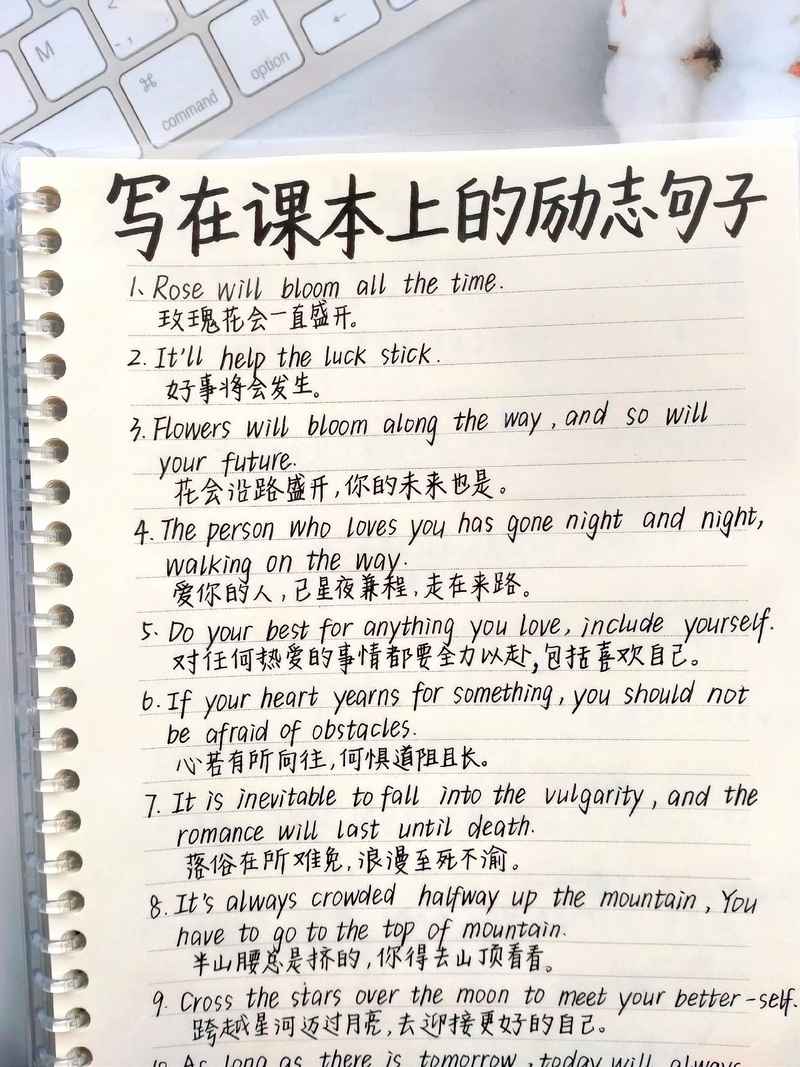 M
⌘
command
alt
option
←
写在课本上的励志句子
1、Rose will bloom all the time.
玫瑰花会一直盛开。
2. It'll help the luck stick.
好事将会发生。
3. Flowers will bloom along the way, and so will
your future.
花会沿路盛开,你的未来也是。
4. The person who loves you has gone night and night,
walking on the way.
爱你的人,已星夜兼程,走在来路。
5. Do your best for anything you love, include yourself.
对任何热爱的事情都要全力以赴,包括喜欢自己。
6. If your heart yearns for something, you should not
be afraid of obstacles.
心若有所向往,何惧道阻且长。
7. It is inevitable to fall into the vulgarity, and the
romance will last until death.
落俗在所难免,浪漫至死不渝。
8. It's always crowded halfway up the mountain, You
have to go to the top of mountain.
半山腰总是挤的,你得去山顶看看。
9. Cross the stars over the moon to meet your better-self.
跨越星河迈过月亮,去迎接更好的自己。
10. As long as there is tomorrow, today will always